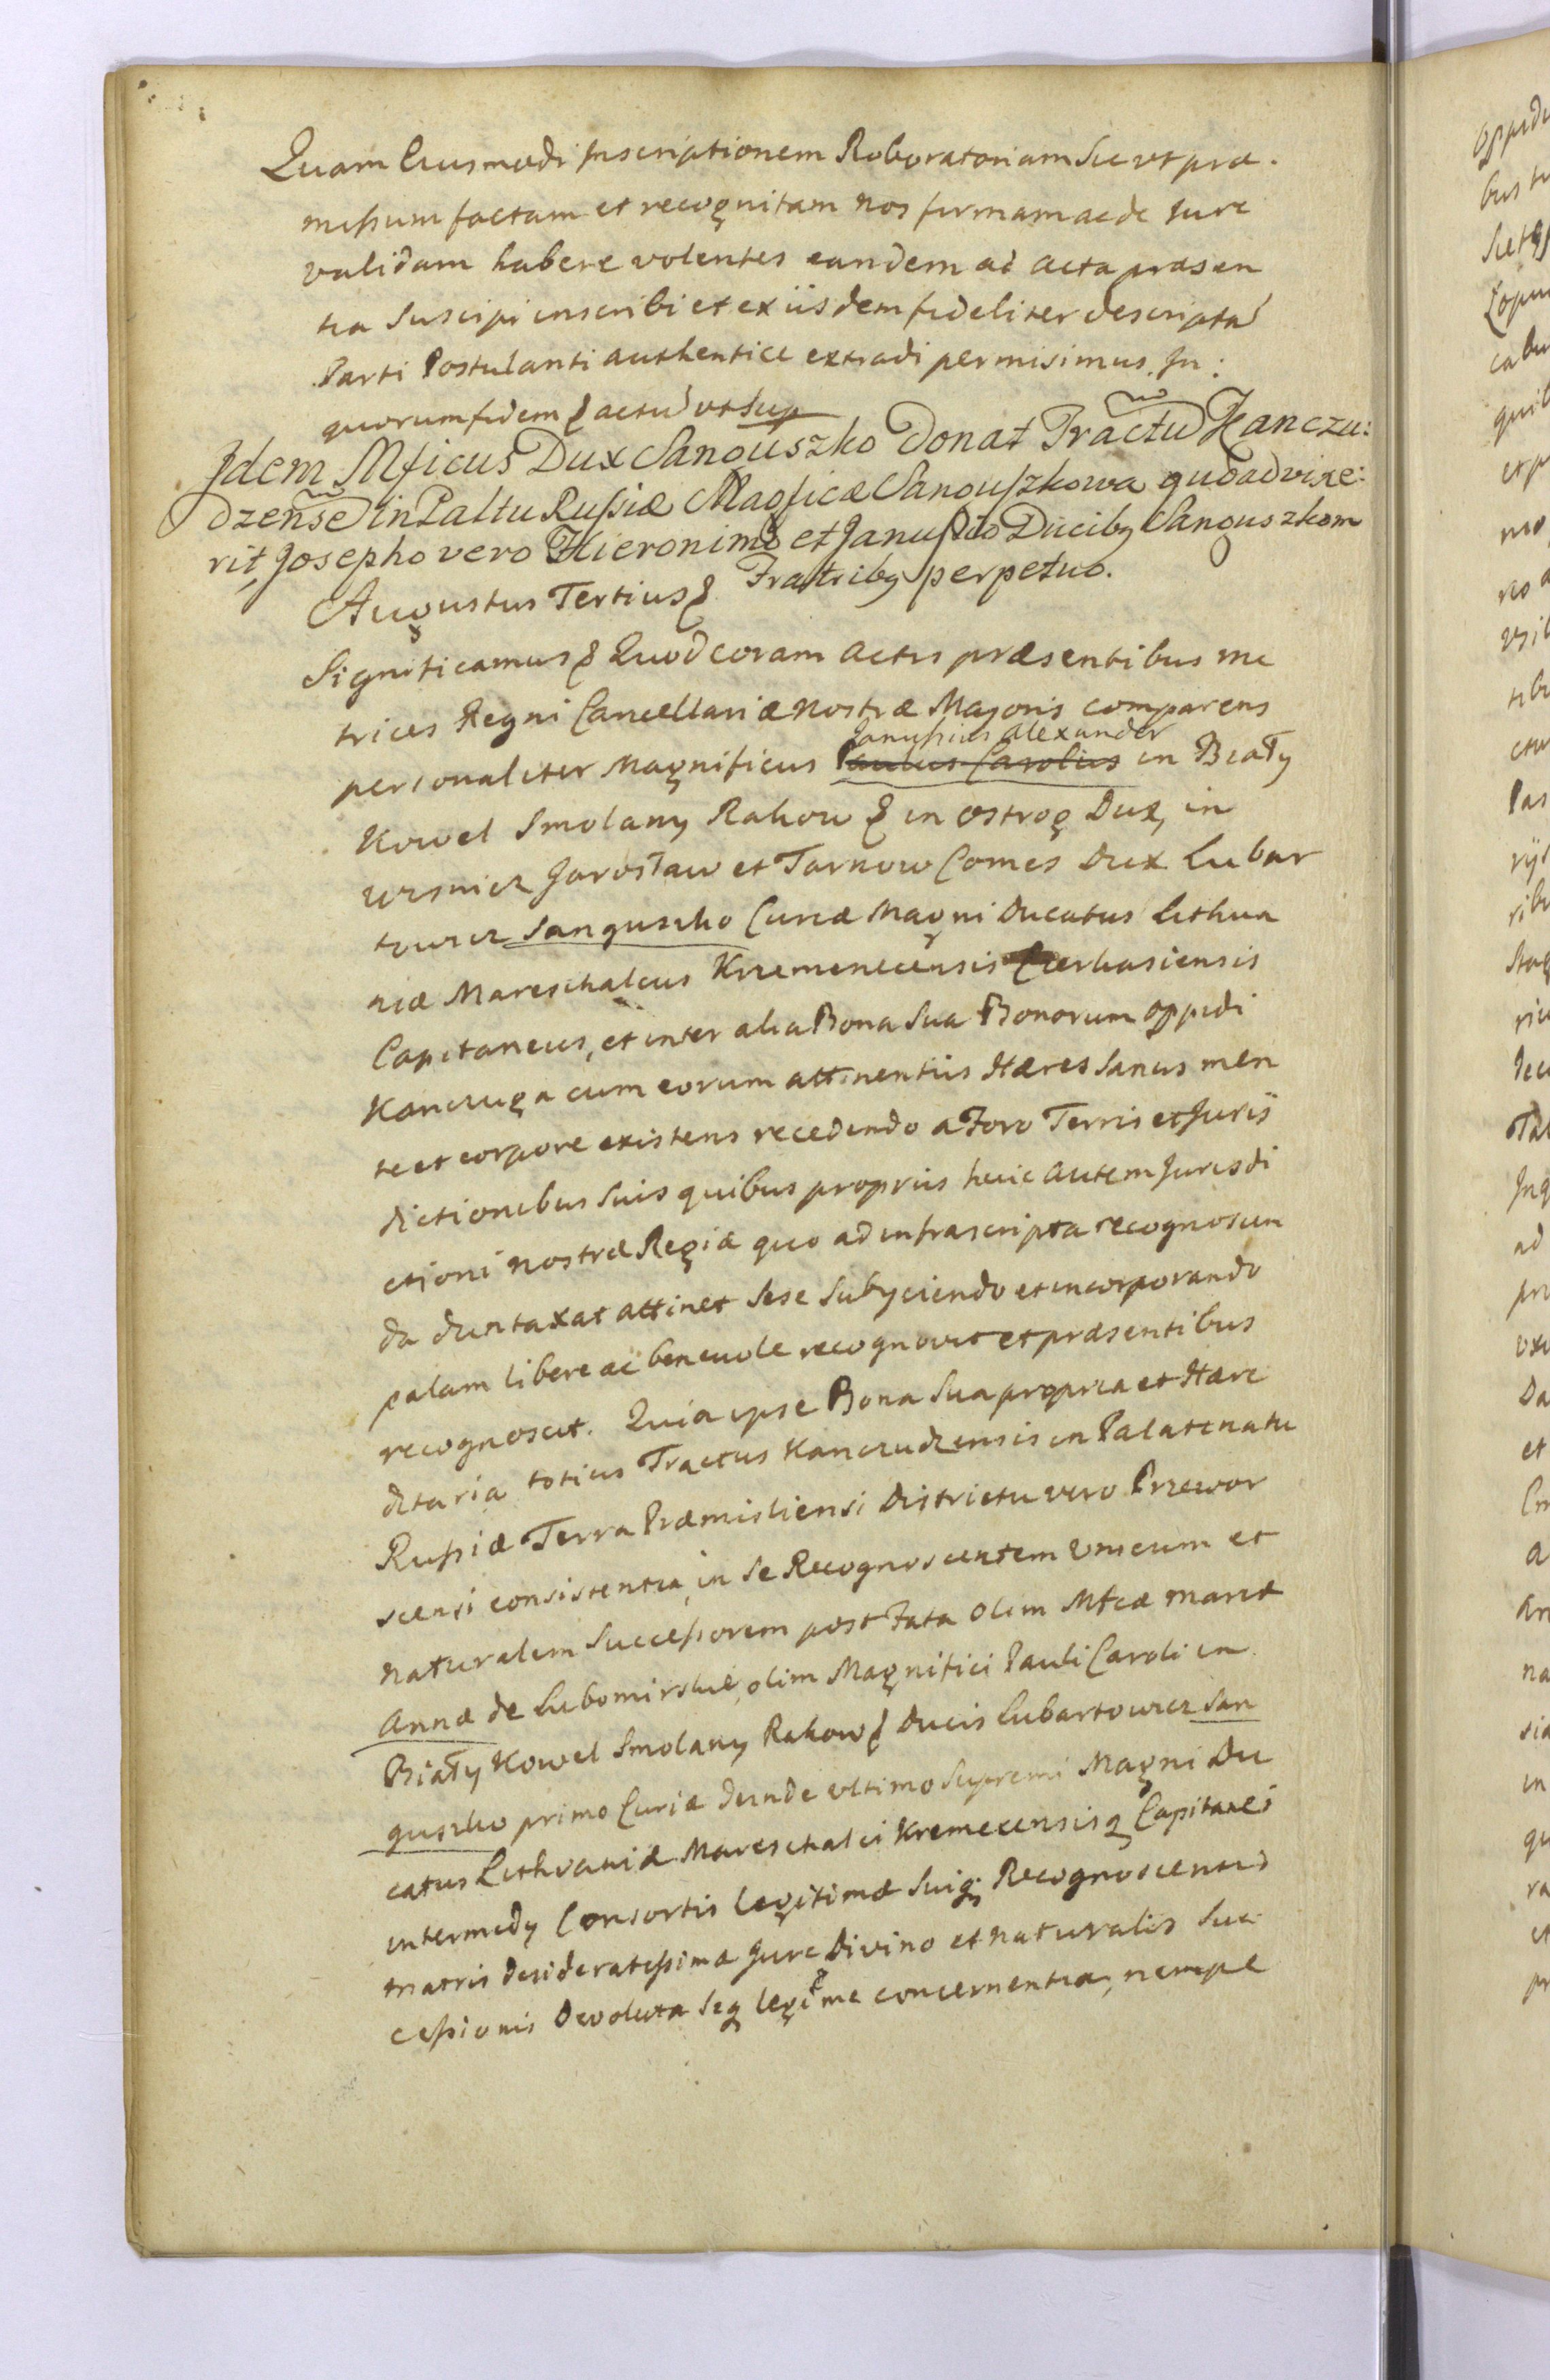 Quam Eiusmodi Inscriptionem Roboratoriam Sic ut præ.
missum factam et recognitam nos firmam ac de Jure
validam habere volentes eandem ad acta præsen
tia Suscipi inscribi et ex iisdem fideliter descriptã
Parti Postulanti authentice extradi permisimus. In:
quorum fidem & actũ ut Sup
Idem Mficus Dux Sanguszko Donat Tractũ Kanczu:
dzense in Paltu Rußiæ Magficæ Sangußkowa quo ad vixe:
rit, Josepho vero Hieronimo et Janußio Ducibq Sanguszkom
Fratribq perpetuo.
Augustus Tertius &
Significamus & Quod coram actis præsentibus me
trices Regni Cancellariæ nostræ Majoris comparens
Janußius Alexander
personaliter Magnificus Paulus Carolus in Biały
Kowel Smolany Rakow & in Ostrog Dux, in
Wisnicz Jarosław et Tarnow Comes Dux Lubar
towicz Sanguszko Curiæ Magni Ducatus Lithua
niæ Mareschalcus Krzemenecensis Czerkasiensis
Capitaneus, et inter alia Bona Sua Bonorum Oppidi
Kanczuga cum eorum attinentiis Hæres Sanus men
te et corpore existens recedendo a Foro Terris et Juris
dictionibus Suis quibus propriis huic autem Jurisdi
ctioni nostræ Regiæ quo ad infrascripta recognoscen
da duntaxat attinet Sese Subyciendo et incorporando
palam libere ac benevole recognovit et præsentibus
recognoscit. Quia ipse Bona Sua propria et Hære
ditaria totius Tractus Kanczudzensis in Palatinatu
Rußiæ Terra Præmisliensi Districtu vero Przewor
scensi consistentia, in Se Recognoscentem Unicum et
naturalem Succeßorem post Fata Olim Mfcæ Mariæ
Annæ de Lubomirskie, olim Magnifici Pauli Caroli in
Biały Kowel Smolany Rakow & Ducis Lubartowicz San
guszko primo Curiæ deinde ultimo Supremi Magni Du
catus Lithvaniæ Mareschalci Kremecensisq Capitanei
intermedy Consortis Legitimæ Suiq; Recognoscentis
matris desideratißimæ Jure Divino et naturalis Suc
ceßionis Devoluta Seq legitime concernentia, nempe